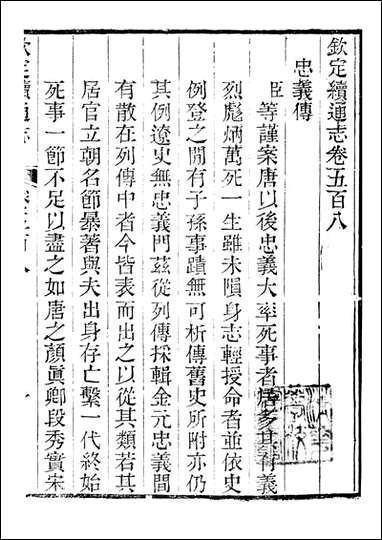 欽定續通志卷五百八
忠義傳
臣等謹案唐以後忠義大率死事者居多其有義
烈彪炳萬死一生雖未隕身志輕授命者並依史
例登之間有子孫事蹟無可析傳舊史所附亦仍
其例遼史無忠義門茲從列傳採輯金元忠義間
有散在列傳中者今皆表而出之以從其類若其
居官立朝名節暴著與夫出身存亡繫一代終始
死事一節不足以盡之如唐之顏眞卿段秀實宋
欽定續通志 卷五百八 一